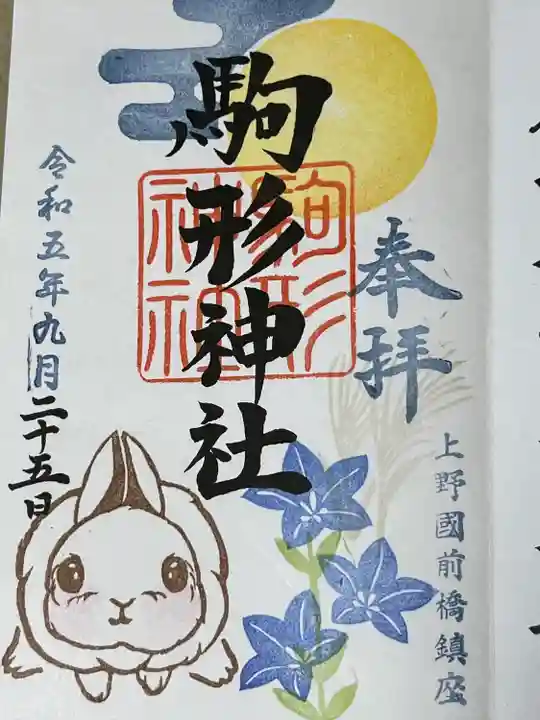 奉拝
上野國前橋鎮座
駒形神社
駒形神社
令和五年九月二十五日